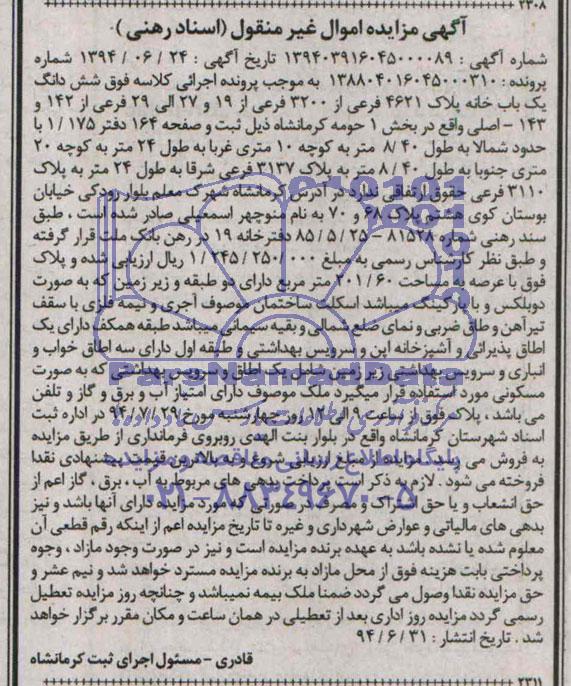 ۲۳۰۸
آگهی مزایده اموال غیر منقول (اسناد رهنی)
شماره آگهی : ۱۳۹۴۰۳۹۱۶۰۴۵۰۰۰۰۸۹ تاریخ آگهی : ۲۴ / ۰۶ / ۱۳۹۴ شماره
پرونده : ۱۳۸۸۰۴۰۱۶۰۴۵۰۰۰۳۱۰ به موجب پرونده اجرائی کلاسه فوق شش دانگ
یک باب خانه پلاک ۴۶۲۱ فرعی از ۳۲۰۰ فرعی از ۱۹ و ۲۷ الی ۲۹ فرعی از ۱۴۲ و
۱۴۳ – اصلی واقع در بخش ۱ حومه کرمانشاه ذیل ثبت و صفحه ۱۶۴ دفتر ۱۷۵ / ۱ با
حدود شمالا به طول ۴۰ /۸ متر به کوچه ۱۰ متری غربا به طول ۲۴ متر به کوچه ۲۰
متری جنوبا به طول ۴۰ / ۸ متر به پلاک ۳۱۳۷ فرعی شرقا به طول ۲۴ متر به پلاک
۳۱۱۰ فرعی حقوق ارتفاقی ندارد در آدرس کرمانشاه شهرک معلم بلوار رودکی خیابان
بوستان کوی هشتم پلاک ۶۸ و ۷۰ به نام منوچهر اسمعیلی صادر شده است ، طبق
سند رهنی شماره ۸۱۵۲۸ – ۲۵ / ۵ / ۸۵ دفترخانه ۱۹ در رهن بانک ملت قرار گرفته
و طبق نظر کارشناس رسمی به مبلغ ۰۰۰/ ۲۵۰/ ۲۴۵/ ۱ ریال ارزیابی شده و پلاک
فوق با عرصه به مساحت ۶۰ / ۲۰۱ متر مربع دارای دو طبقه و زیر زمین که به صورت
دوبلکس و با پارکینگ میباشد اسکلت ساختمان موصوف آجری و نیمه فلزی با سقف
تیرآهن و طاق ضربی و نمای ضلع شمالی و بقیه سیمانی میباشد طبقه همکف دارای یک
اطاق پذیرائی و آشپزخانه اپن و سرویس بهداشتی و طبقه اول دارای سه اطاق خواب و
انباری و سرویس بهداشتی زیر زمین شامل یک اطاق و سرویس بهداشتی که به صورت
مسکونی مورد استفاده قرار میگیرد ملک موصوف دارای امتیاز آب و برق و گاز و تلفن
می باشد ، پلاک فوق از ساعت ۹ الی ۱۲ روز چهارشنبه مورخ ۲۹/ ۷ /۹۴ در اداره ثبت
اسناد شهرستان کرمانشاه واقع در بلوار بنت الهدی روبروی فرمانداری از طریق مزایده
به فروش می رسد . مزایده از مبلغ ارزیابی شروع و به بالاترین قیمت پیشنهادی نقدا
فروخته می شود . لازم به ذکر است پرداخت بدهی های مربوط به آب ، برق ، گاز اعم از
حق انشعاب و یا حق اشتراک و مصرف در صورتی که مورد مزایده دارای آنها باشد و نیز
بدهی های مالیاتی و عوارض شهرداری و غیره تا تاریخ مزایده اعم از اینکه رقم قطعی آن
معلوم شده یا نشده باشد به عهده برنده مزایده است و نیز در صورت وجود مازاد ، وجوه
پرداختی بابت هزینه فوق از محل مازاد به برنده مزایده مسترد خواهد شد و نیم عشر و
حق مزایده نقدا وصول می گردد ضمنا ملک بیمه نمیباشد و چنانچه روز مزایده تعطیل
رسمی گردد مزایده روز اداری بعد از تعطیلی در همان ساعت و مکان مقرر برگزار خواهد
شد . تاریخ انتشار : ۳۱ / ۶ / ۹۴
قادری – مسئول اجرای ثبت کرمانشاه
۲۳۱۱
ParsNamadData
پایگاه اطلاع رسانی مناقصه و مزایده
۰۲۱-۸۸۳۴۹۶۷۰-۵